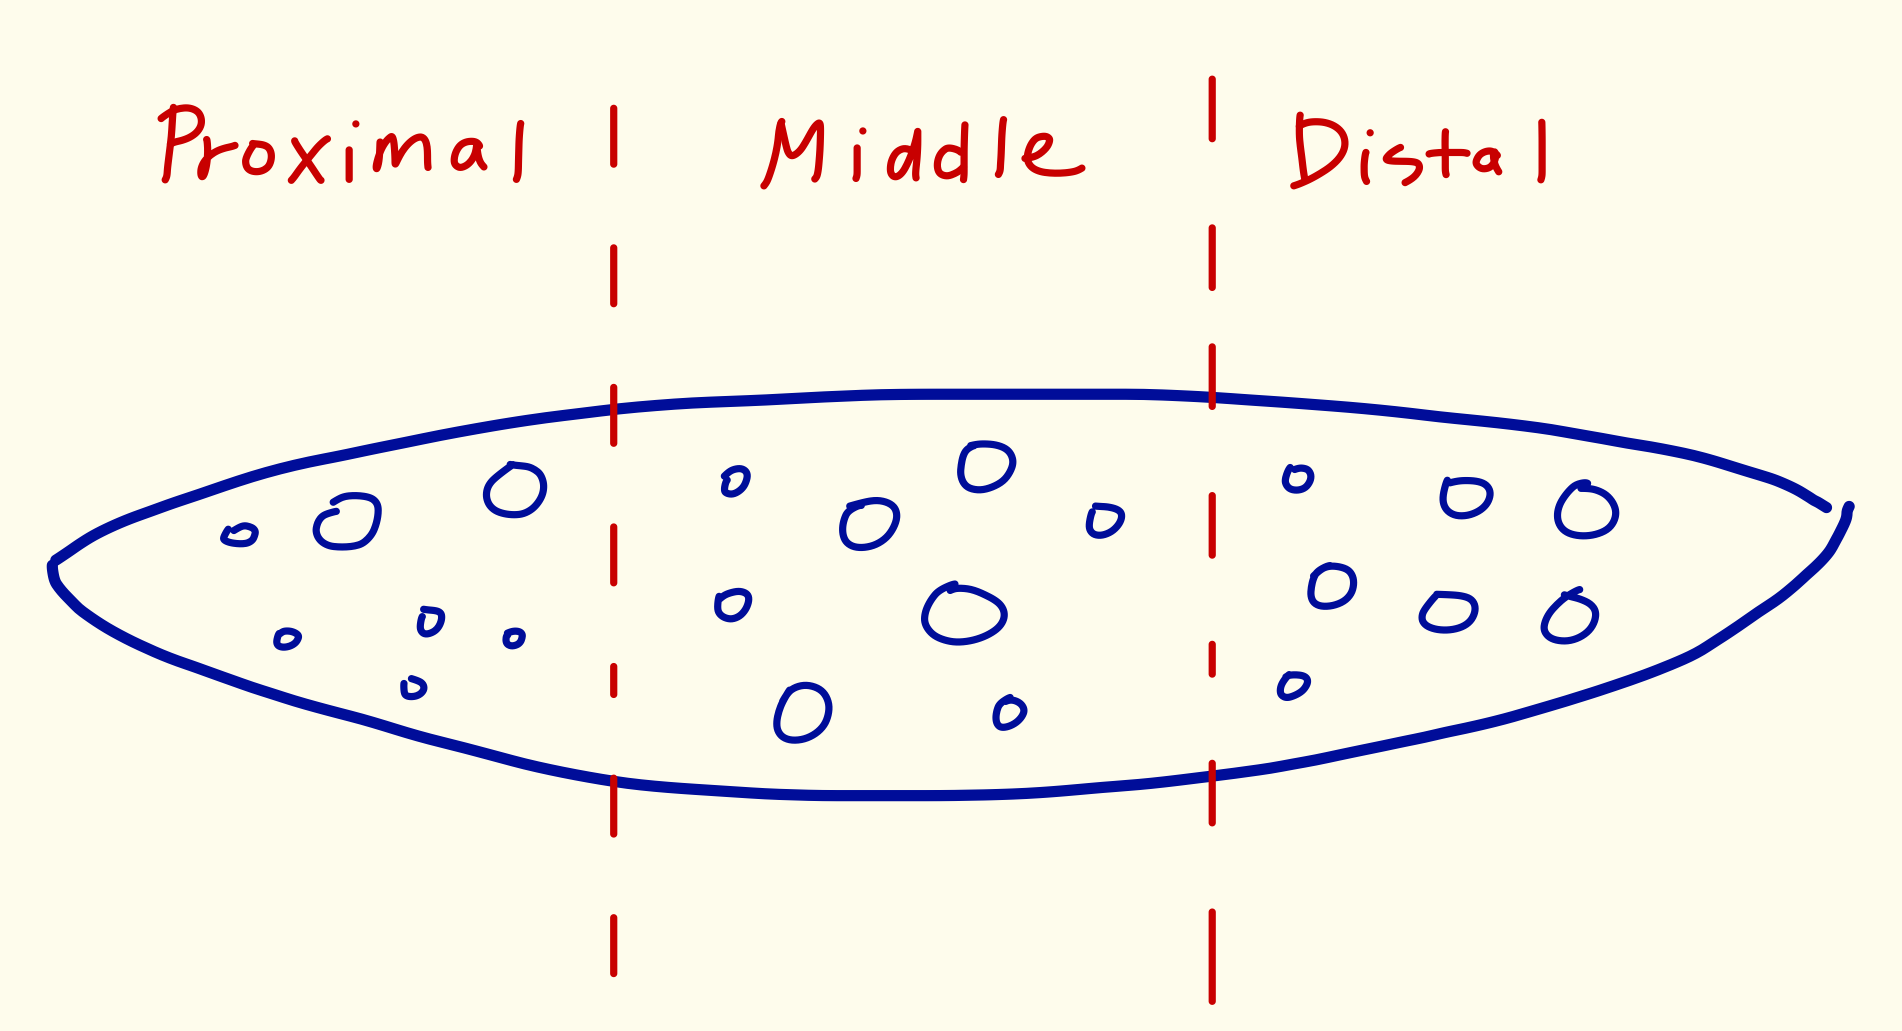 Proximal Middle Distal